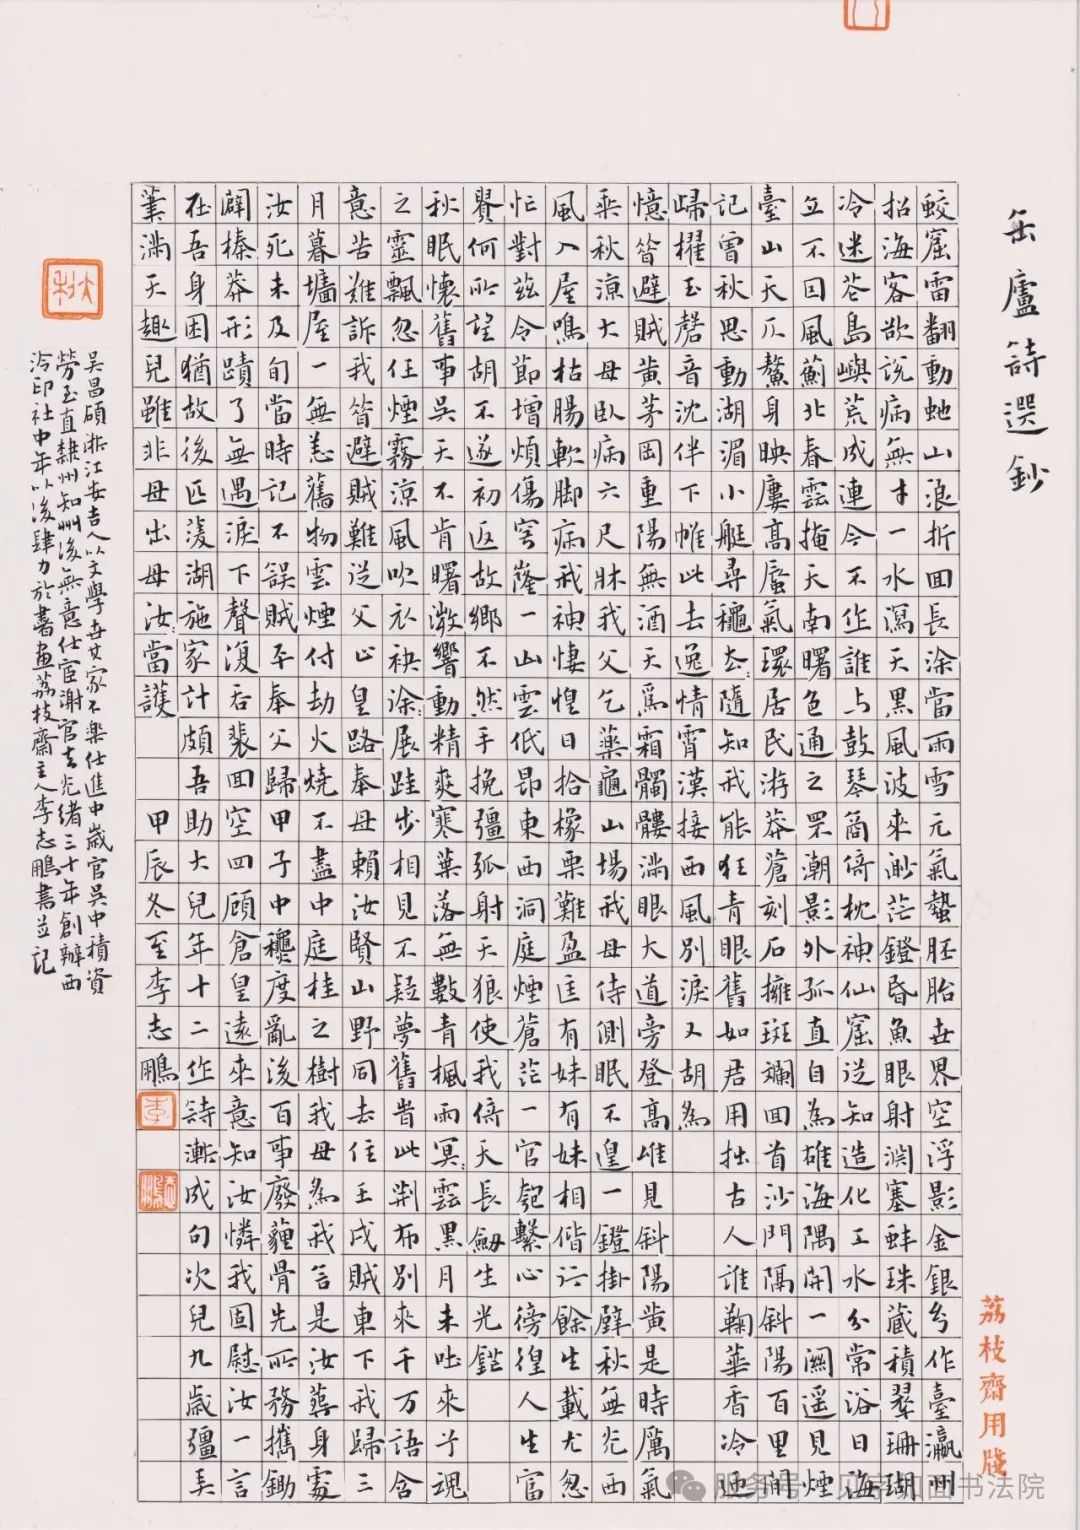 缶廬詩選鈔
蛟窟雷翻動虵山浪折回長涂當雨雪元氣蟄胚胎世界空浮影金銀兮作臺瀛州
招海客欲說病無才一水瀉天黑風波來渺茫鐙昏魚眼射淵塞蚌珠藏積翠珊瑚
冷迷蒼島嶼荒成連今不作誰与鼓琴商倚枕神仙窟從知造化工水分常浴日海
立不因風薊北春雲掩天南曙色通之罘潮影外孤直自為雄海隅開一闕遥見煙
臺山天爪鰲身映廔高蜃氣環居民游莽蒼刻石擁斑斕回首沙門隔斜陽百里間
記曾秋思動湖湄小艇尋穐去隨知我能狂青眼舊如君用拙古人誰鞠華香冷迴
歸櫂玉磬音沈伴下帷此去逸情霄漢接西風別淚又胡為
憶昔避賊黃茅岡重陽無酒天爲霜髑髏滿眼大道旁登高唯見斜陽黃是時厲氣
乘秋涼大母臥病六尺牀我父乞藥龜山場我母侍側眠不遑一鐙掛壁秋無光西
風入屋鳴枯腸軟脚病我神悽惶日拾橡栗難盈匡有妹有妹相偕行餘生載尤忽
忙對茲令節增煩傷穹窿一山雲低昂東西洞庭煙蒼茫一官匏繫心徬徨人生富
貴何所望胡不遂初返故鄉不然手挽彊弧射天狼使我倚天長劒生光鋩
秋眠懷舊事吳天不肯曙激響動精爽寒葉落無數青楓雨冥〻雲黑月未吐來兮魂
之靈飄忽任煙霧涼風吹衣袂徐〻展跬步相見不疑夢舊昔此荆布別來千万語含
意苦難訴我昔避賊難從父止皇路奉母賴汝賢山野同去住壬戌賊東下我歸三
月暮墻屋一無恙舊物雲煙付劫火燒不盡中庭桂之樹我母為我言是汝葬身處
汝死未及旬當時記不誤賊平奉父歸甲子中穐度亂後百事廢薶骨先所務攜鋤
闢榛莽形蹟了無遇淚下聲復吞裴回空四顧倉皇遠來意知汝憐我固慰汝一言
在吾身困猶故後匹菱湖施家計頗吾助大兒年十二作詩漸成句次兒九歲彊美
業滿天趣兒雖非母出母汝〻當護 甲辰冬至李志鵬
李
志鵬
吳昌碩浙江安吉人以文學世其家不樂仕進中歲官吳中積資
勞至直隸州知州後無意仕宦謝官去光緒三十年創辦西
泠印社中年以後肆力於書畫荔枝齋主人李志鵬書並記
荔枝齋用牋
服务号·见字如面书法院